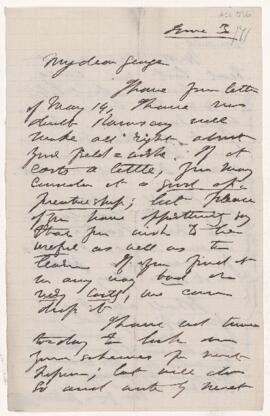 June 3
My dear George
I have your letter
of May 19, I have no
doubt Ramsay will
make all right about
your field work. If it
costs a little, you may
consider it a sort of ap-
prenticeship; but please
if you have opportunity say
that you wish to be
useful as well as to
learn. If you find it
in any way bad or
very costly, we can
drop it
I have not time
to day to look on
your schemes for next
; but will do
so and write by next